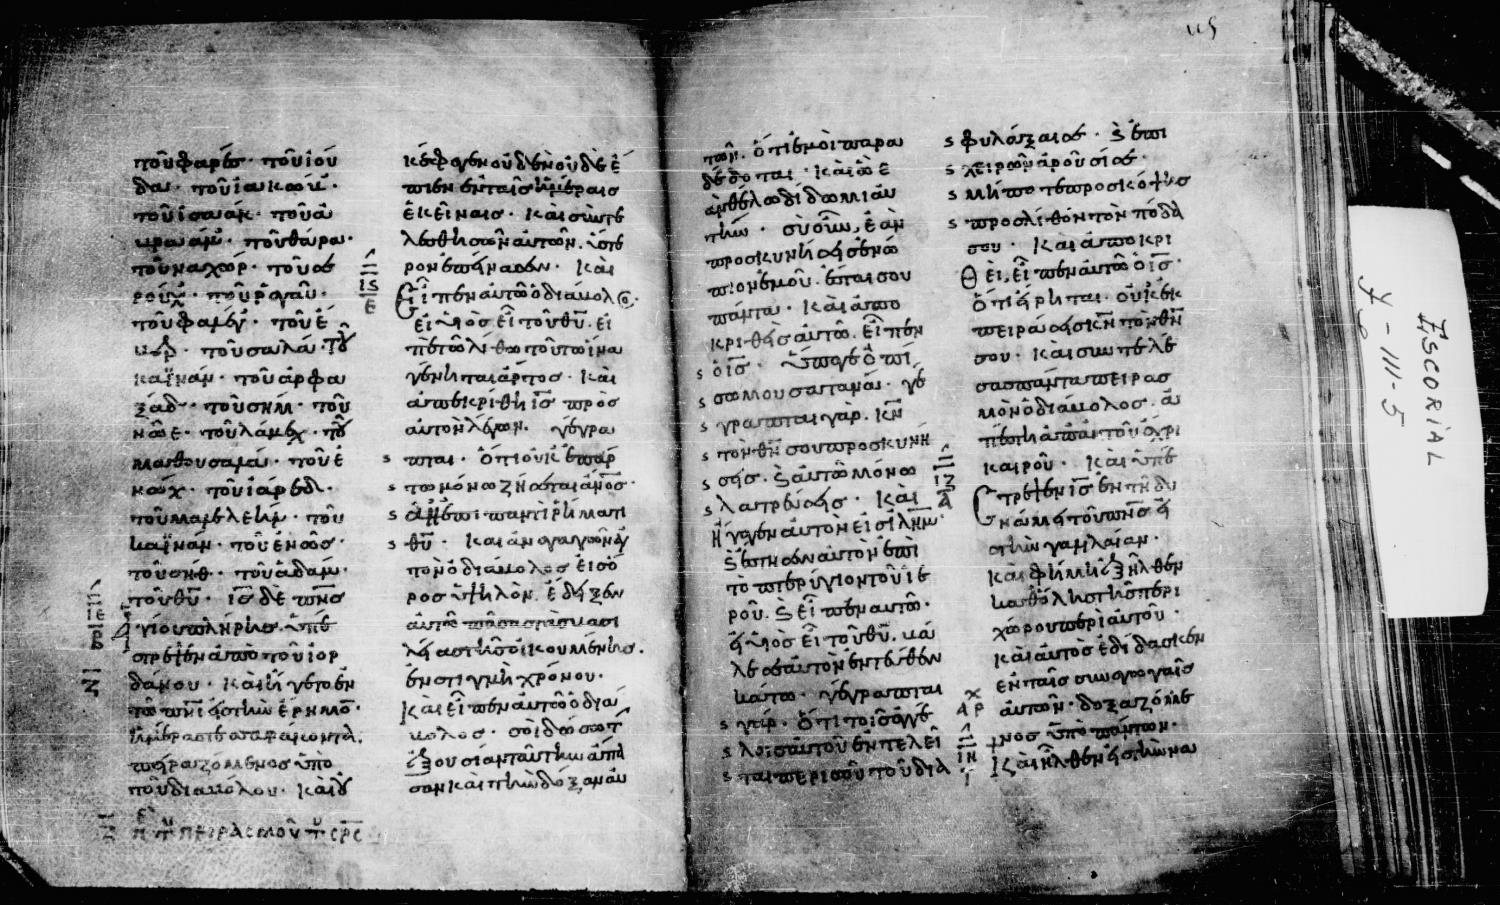 τοῦ φαρές· τοῦ ἰού
δα· τοῦ ἰακώβ·
τοῦ ἰσαάκ· τοῦ ἀ
βραάμ· τοῦ θάρα·
τοῦ ναχώρ· τοῦ σε
ρούχ· τοῦ ῥαγαῦ·
τοῦ φαλέγ· τοῦ ἔ
βερ· τοῦ σαλά· τοῦ
καϊνάν· τοῦ ἀρφα
ξάδ· τοῦ σήμ· τοῦ
νῶε· τοῦ λάμεχ· τοῦ
μαθουσαλά· τοῦ ἐ
νώχ· τοῦ ἰάρεδ·
τοῦ μαλελεήλ· τοῦ
καϊνάν· τοῦ ἐνώς·
τοῦ σήθ· τοῦ ἀδάμ·
τοῦ θῦ· ἰς δὲ πνς
ἁγίου πλήρης ὑπέ
στρεψεν ἀπὸ τοῦ ἰορ
δάνου· καὶ ἤγετο ἐν
τῶ πνι εἰς τὴν ἔρημον·
ἡμέρας τεσσαράκοντα,
πειραζόμενος ὑπὸ
τοῦ διαβόλου· καὶ οὐ
ΠΕΙΡΑΣΜΟΥ
κ ἔφαγεν οὐδὲν οὐδὲ ἔ
πιεν ἐν ταῖς ἡμέραις
ἐκείναις· καὶ συντε
λεσθεισῶν αὐτῶν, ὕστε
ρον ἐπείνασεν· καὶ
εἶπεν αὐτῶ ὁ διάβολος·
εἰ υἱὸς εἶ τοῦ θῦ, εἰ
πὲ τῶ λίθω τούτω ἵνα
γένηται ἄρτος· καὶ
ἀπεκρίθη ις πρὸς
αὐτὸν λέγων· γέγρα
πται· ὅτι οὐκ ἐπ' ἄρ
τω μόνω ζήσεται ἄνος·
ἀλλ' ἐπὶ παντὶ ῥήματι
θῦ· καὶ ἀναγαγὼν αὐ
τὸν ὁ διάβολος εἰς ὄ
ρος ὑψηλὸν, ἔδειξεν
αὐτῶ πάσας τὰς βασι
λείας τῆς οἰκουμένης.
ἐν στιγμῆ χρόνου·
καὶ εἶπεν αὐτῶ ὁ διά
βολος· σοὶ δώσω τὴν
ἐξουσίαν ταύτην ἅπα
σαν καὶ τὴν δόξαν αὐ
τῶν· ὅτι ἐμοὶ παρα
δέδοται· καὶ ὧ ἐ
ὰν θέλω δίδωμι αὐ
τήν· σὺ οὖν, ἐὰν
προσκυνήσης ἐνώ
πιον ἐμοῦ· ἔσται σου
πάντα· καὶ ἀπο
κριθεὶς αὐτῶ, εἶπεν
ὁ ις· ὕπαγε ὀπί
σω μου σατανᾶ· γέ
γραπται γάρ· κν
τὸν θν σου προσκυνή
σεις· καὶ αὐτῶ μόνω
λατρεύσεις· καὶ
ἤγαγεν αὐτὸν εἰς ιλημ·
καὶ ἔστησεν αὐτὸν ἐπὶ
τὸ πτερύγιον τοῦ ἱε
ροῦ. καὶ εἶπεν αὐτῶ·
εἰ υἱὸς εἶ τοῦ θῦ, βά
λε σεαυτὸν ἐντεῦθεν
κάτω· γέγραπται
γάρ· ὅτι τοῖς ἀγγέ
λοις αὐτοῦ ἐντελεῖ
ται περὶ σοῦ τοῦ δια
φυλάξαι σε· καὶ ἐπὶ
χειρῶν ἀροῦσί σε·
μήποτε προσκόψης
πρὸς λίθον τὸν πόδα
σου· καὶ ἀποκρι
θεὶς, εἶπεν αὐτῶ ὁ ις·
ὅτι εἴρηται· οὐκ ἐκ
πειράσεις κν τὸν θν
σου· καὶ συντελέ
σας πάντα πειρασ
μὸν ὁ διάβολος· ἀ
πέστη ἀπ' αὐτοῦ ἄχρι
καιροῦ· καὶ ὑπέ
στρεψεν ις ἐν τῆ δυ
νάμει τοῦ πνς εἰ
ς τὴν γαλιλαίαν·
καὶ φήμη ἐξῆλθεν
καθ' ὅλης τῆς περι
χώρου περὶ αὐτοῦ·
καὶ αὐτὸς ἐδίδασκεν
ἐν ταῖς συναγωγαῖς
αὐτῶν· δοξαζόμε
νος ὑπὸ πάντων·
καὶ ἦλθεν εἰς τὴν να
ESCORIAL
Y-III-5